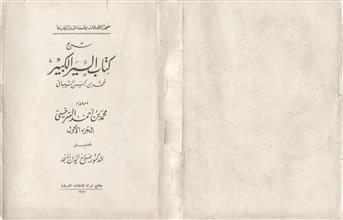 معهد المخطوطات بجامعة الدول العربية
شرح
كتاب السير الكبير
لمحمد بن الحسن الشيباني
إملاء
محمد بن أحمد السرخسي
الجزء الأول
تحقيق
الدكتور صلاح الدين المنجد